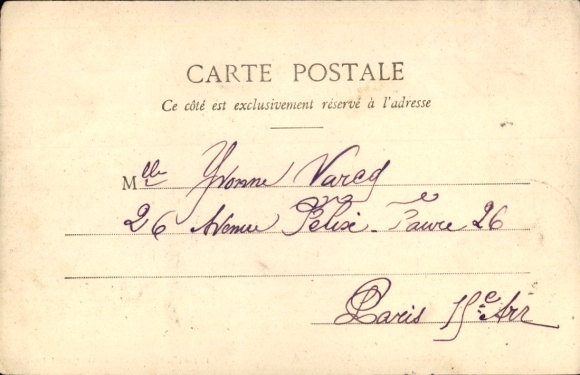 CARTE POSTALE
Ce côté est exclusivement réservé à l'adresse
Mlle Yvonne Varcq
26 Avenue Félix-Faure 26
Paris 15e Arr